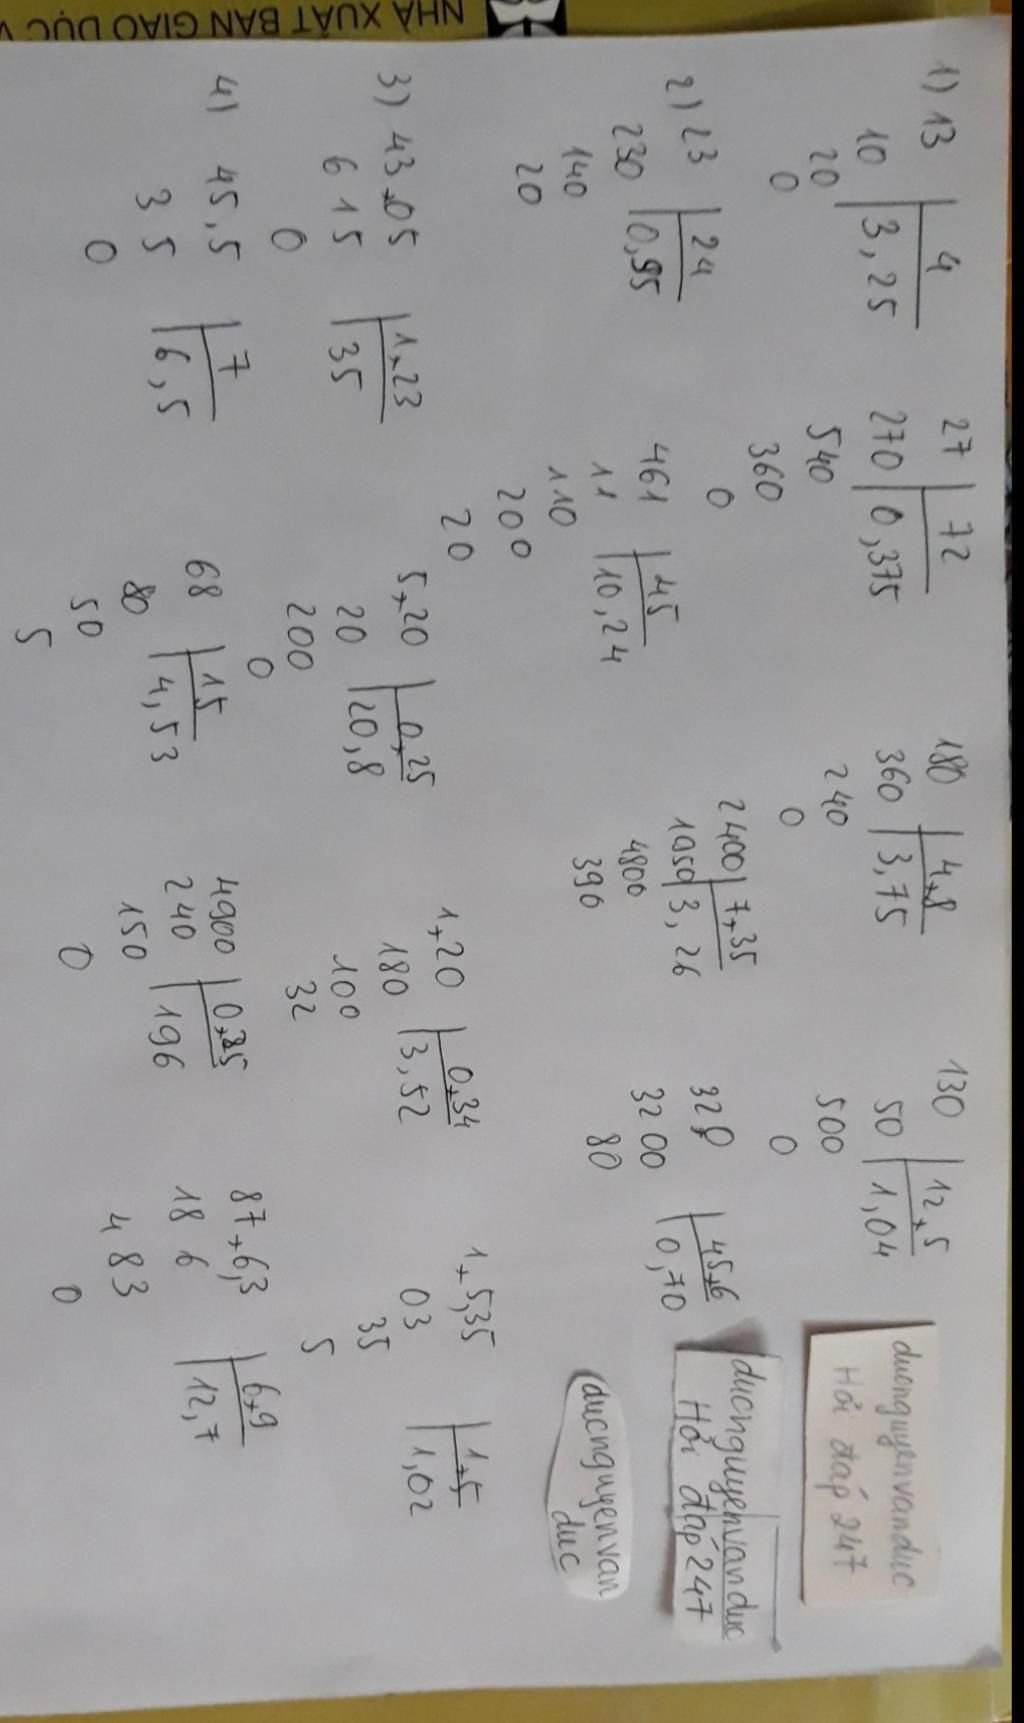 NHÀ XUẤT BẢN GIÁO DỤC V
1) 13 | 4
10 | 3,25
20
0
27 | 72
270 | 0,375
540
360
0
180 | 4,8
360 | 3,75
240
0
130 | 12,5
50 | 1,04
500
0
ducnguyenvanduc
Hỏi đáp 247
2) 23 | 24
230 | 0,95
140
20
461 | 45
11 | 10,24
110
200
20
2400 | 7,35
1950 | 3,26
4800
390
320 | 45,6
3200 | 0,70
80
ducnguyenvanduc
Hỏi đáp 247
3) 43,05 | 1,23
6 15 | 35
0
5,20 | 0,25
20 | 20,8
200
0
1,20 | 0,34
180 | 3,52
100
32
1,5,35 | 1,5
03 | 1,02
35
5
ducnguyenvan
duc
4) 45,5 | 7
3 5 | 6,5
0
68 | 15
80 | 4,53
50
5
4900 | 0,25
240 | 196
150
0
87,6,3 | 6,9
18 6 | 12,7
4 83
0